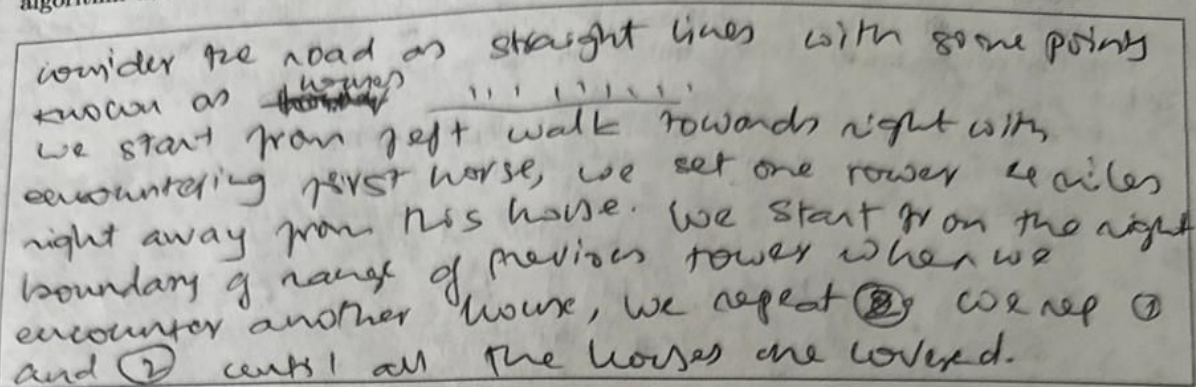 consider the road as straight lines with some points
known as houses
we start from left walk towards right with
encountering first horse, we set one tower 4 miles
right away from this house. We start from the right
boundary of range of previous tower when we
encounter another house, we repeat we rep ①
and ② until all the houses are covered.